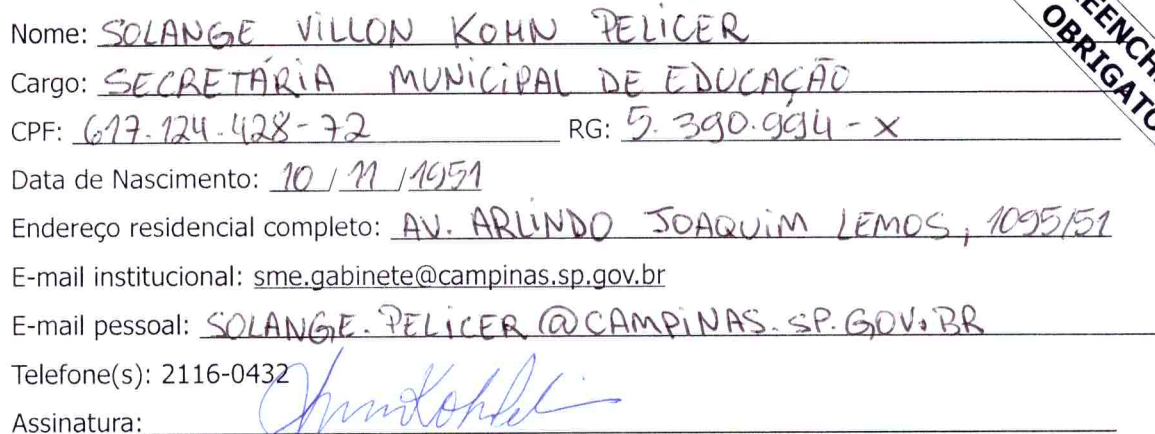 Nome: SOLANGE VILLON KOHN PELICER
Cargo: SECRETÁRIA MUNICIPAL DE EDUCAÇÃO
CPF: 617.124.428-72 RG: 5.390.994-X
Data de Nascimento: 10/11/1951
Endereço residencial completo: AV. ARLINDO JOAQUIM LEMOS, 1095/51
E-mail institucional: sme.gabinete@campinas.sp.gov.br
E-mail pessoal: SOLANGE.PELICER@CAMPINAS.SP.GOV.BR
Telefone(s): 2116-0432
Assinatura: